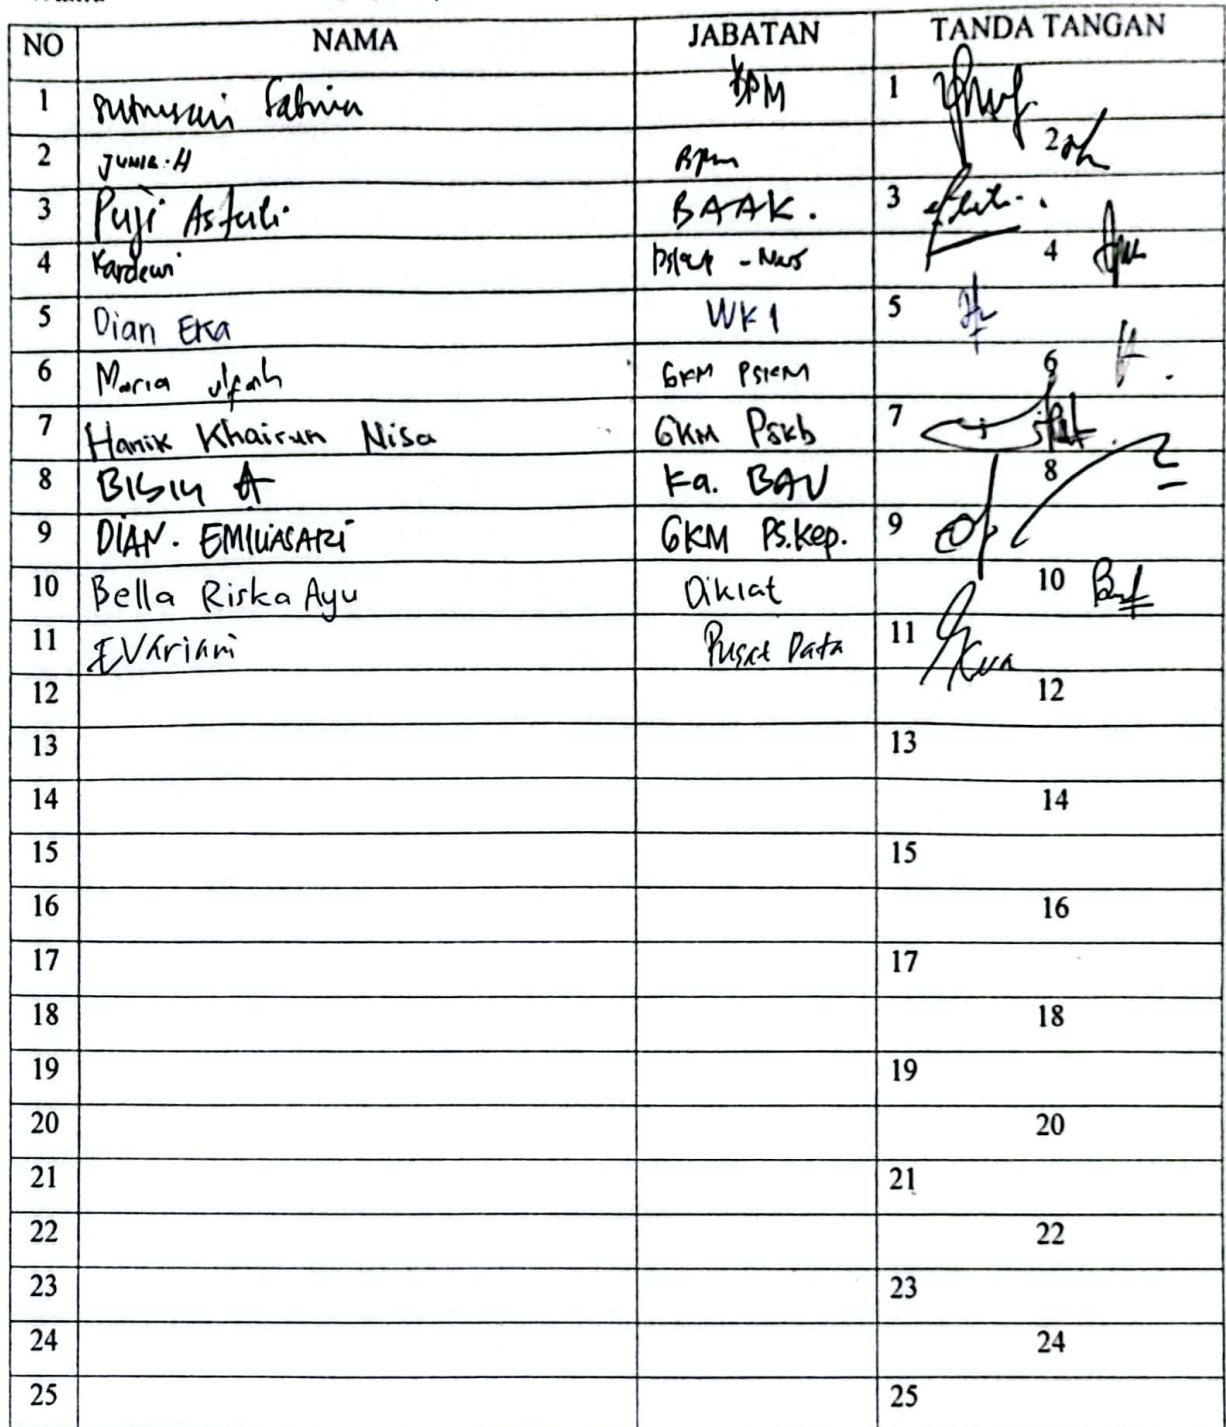 NO NAMA JABATAN TANDA TANGAN
1 BPM 1
2 Junia.H Bpm 2
3 Puji Astuti BAAK. 3
4 Kardewi 4
5 Dian Eka WK 1 5
6 Maria Ulfah GKM PSIKM 6
7 Hanik Khairun Nisa GKM PSKb 7
8 Ka. BAU 8
9 DIAN. EMILIASARI GKM PS.Kep. 9
10 Bella Riska Ayu Diklat 10
11 EVAriani Pusat Data 11
12 12
13 13
14 14
15 15
16 16
17 17
18 18
19 19
20 20
21 21
22 22
23 23
24 24
25 25